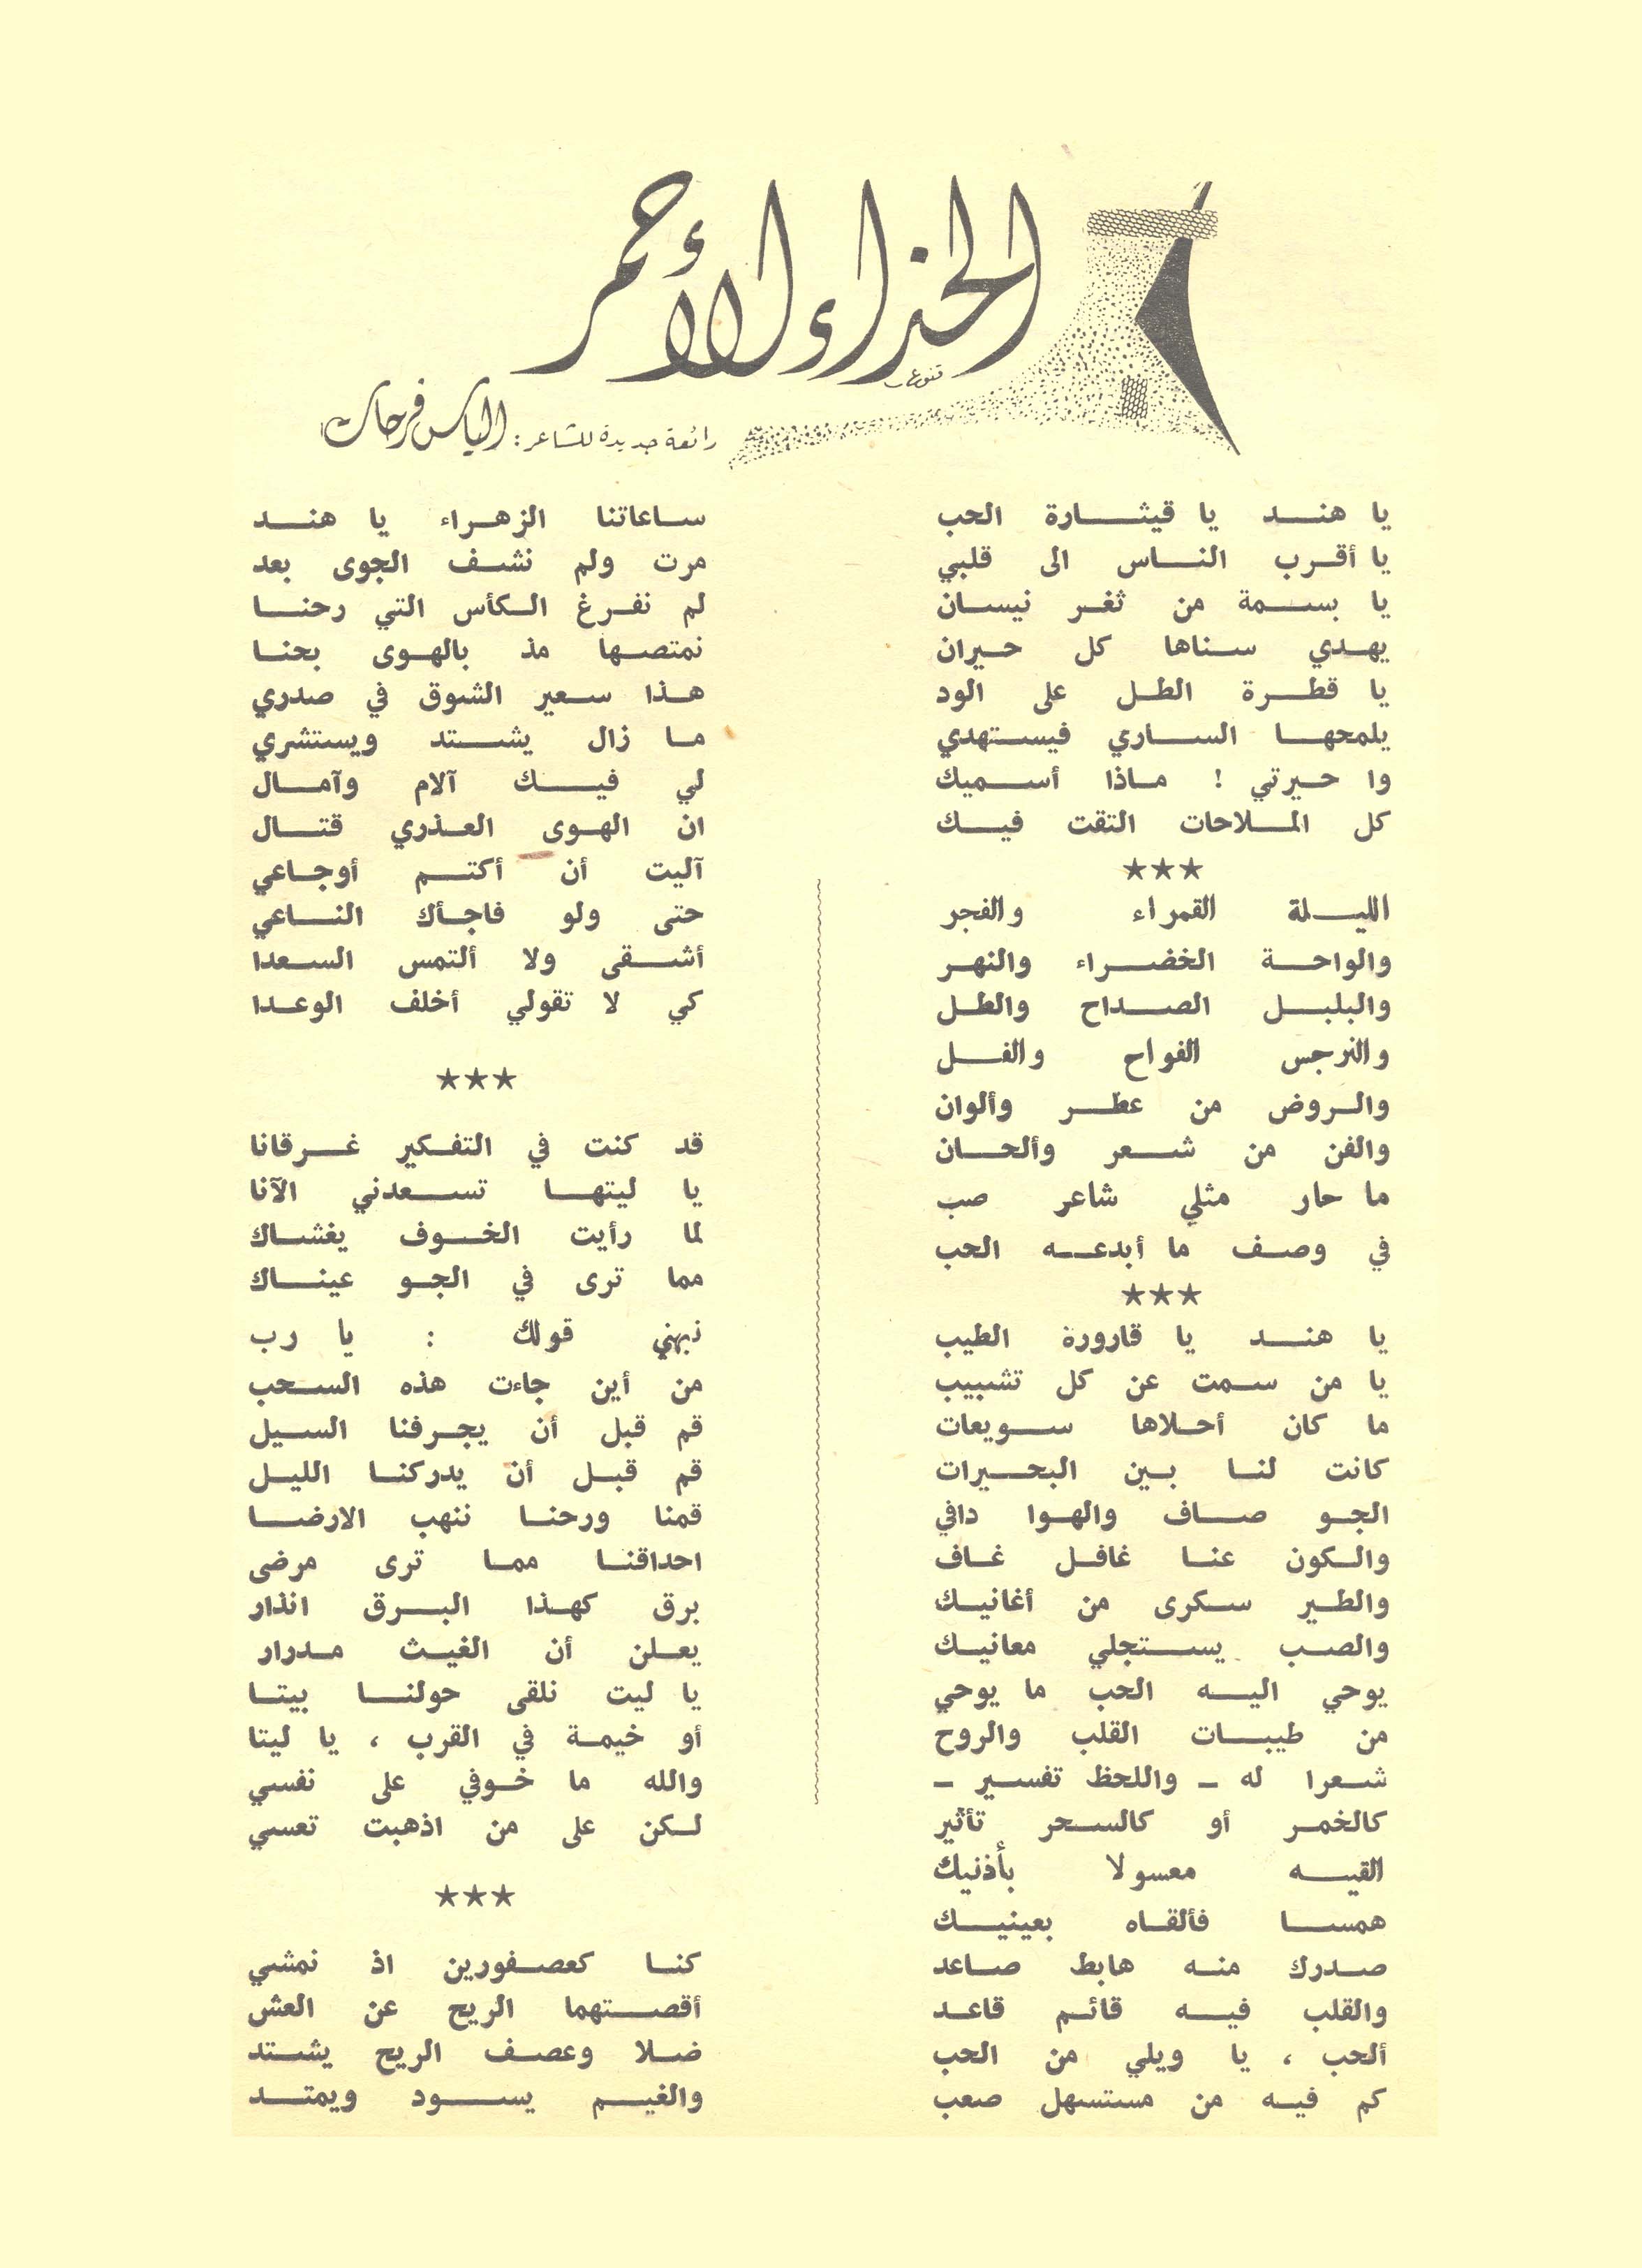 الحذاء الأحمر
رائعة جديدة للشاعر : الياس فرحات
يا هند يا قيثارة الحب
يا أقرب الناس الى قلبي
يا بسمة من ثغر نيسان
يهدي سناها كل حيران
يا قطرة الطل على الود
يلمحها الساري فيستهدي
وا حيرتي ! ماذا أسميك
كل الملاحات التقت فيك
★★★
الليلة القمراء والفجر
والواحة الخضراء والنهر
والبلبل الصداح والطل
والنرجس الفواح والفل
والروض من عطر وألوان
والفن من شعر وألحان
ما حار مثلي شاعر صب
في وصف ما أبدعه الحب
★★★
يا هند يا قارورة الطيب
يا من سمت عن كل تشبيب
ما كان أحلاها سويعات
كانت لنا بين البحيرات
الجو صاف والهوا دافي
والكون عنا غافل غاف
والطير سكرى من أغانيك
والصب يستجلي معانيك
يوحي اليه الحب ما يوحي
من طيبات القلب والروح
شعرا له ـ واللحظ تفسير ـ
كالخمر أو كالسحر تأثير
القيه معسولا بأذنيك
همسا فألقاه بعينيك
صدرك منه هابط صاعد
والقلب فيه قائم قاعد
ألحب ، يا ويلي من الحب
كم فيه من مستسهل صعب
ساعاتنا الزهراء يا هند
مرت ولم نشف الجوى بعد
لم نفرغ الكأس التي رحنا
نمتصها مذ بالهوى بحنا
هذا سعير الشوق في صدري
ما زال يشتد ويستشري
لي فيك آلام وآمال
ان الهوى العذري قتال
آليت أن أكتم أوجاعي
حتى ولو فاجأك الناعي
أشقى ولا ألتمس السعدا
كي لا تقولي أخلف الوعدا
★★★
قد كنت في التفكير غرقانا
يا ليتها تسعدني الآنا
لما رأيت الخوف يغشاك
مما ترى في الجو عيناك
نبهني قولك : يا رب
من أين جاءت هذه السحب
قم قبل أن يجرفنا السيل
قم قبل أن يدركنا الليل
قمنا ورحنا ننهب الارضا
احداقنا مما ترى مرضى
برق كهذا البرق انذار
يعلن أن الغيث مدرار
يا ليت نلقى حولنا بيتا
أو خيمة في القرب ، يا ليتا
والله ما خوفي على نفسي
لكن على من اذهبت تعسي
★★★
كنا كعصفورين اذ نمشي
أقصتهما الريح عن العش
ضلا وعصف الريح يشتد
والغيم يسود ويمتد